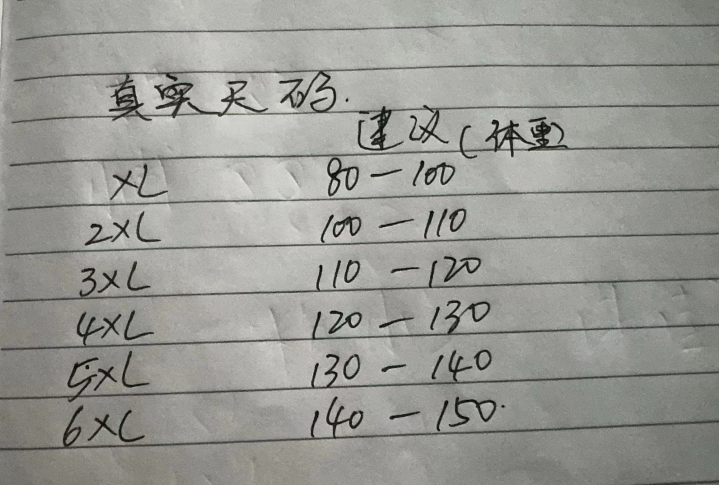 真实尺码.
建议(体重)
XL 80－100
2XL 100－110
3XL 110－120
4XL 120－130
5XL 130－140
6XL 140－150.